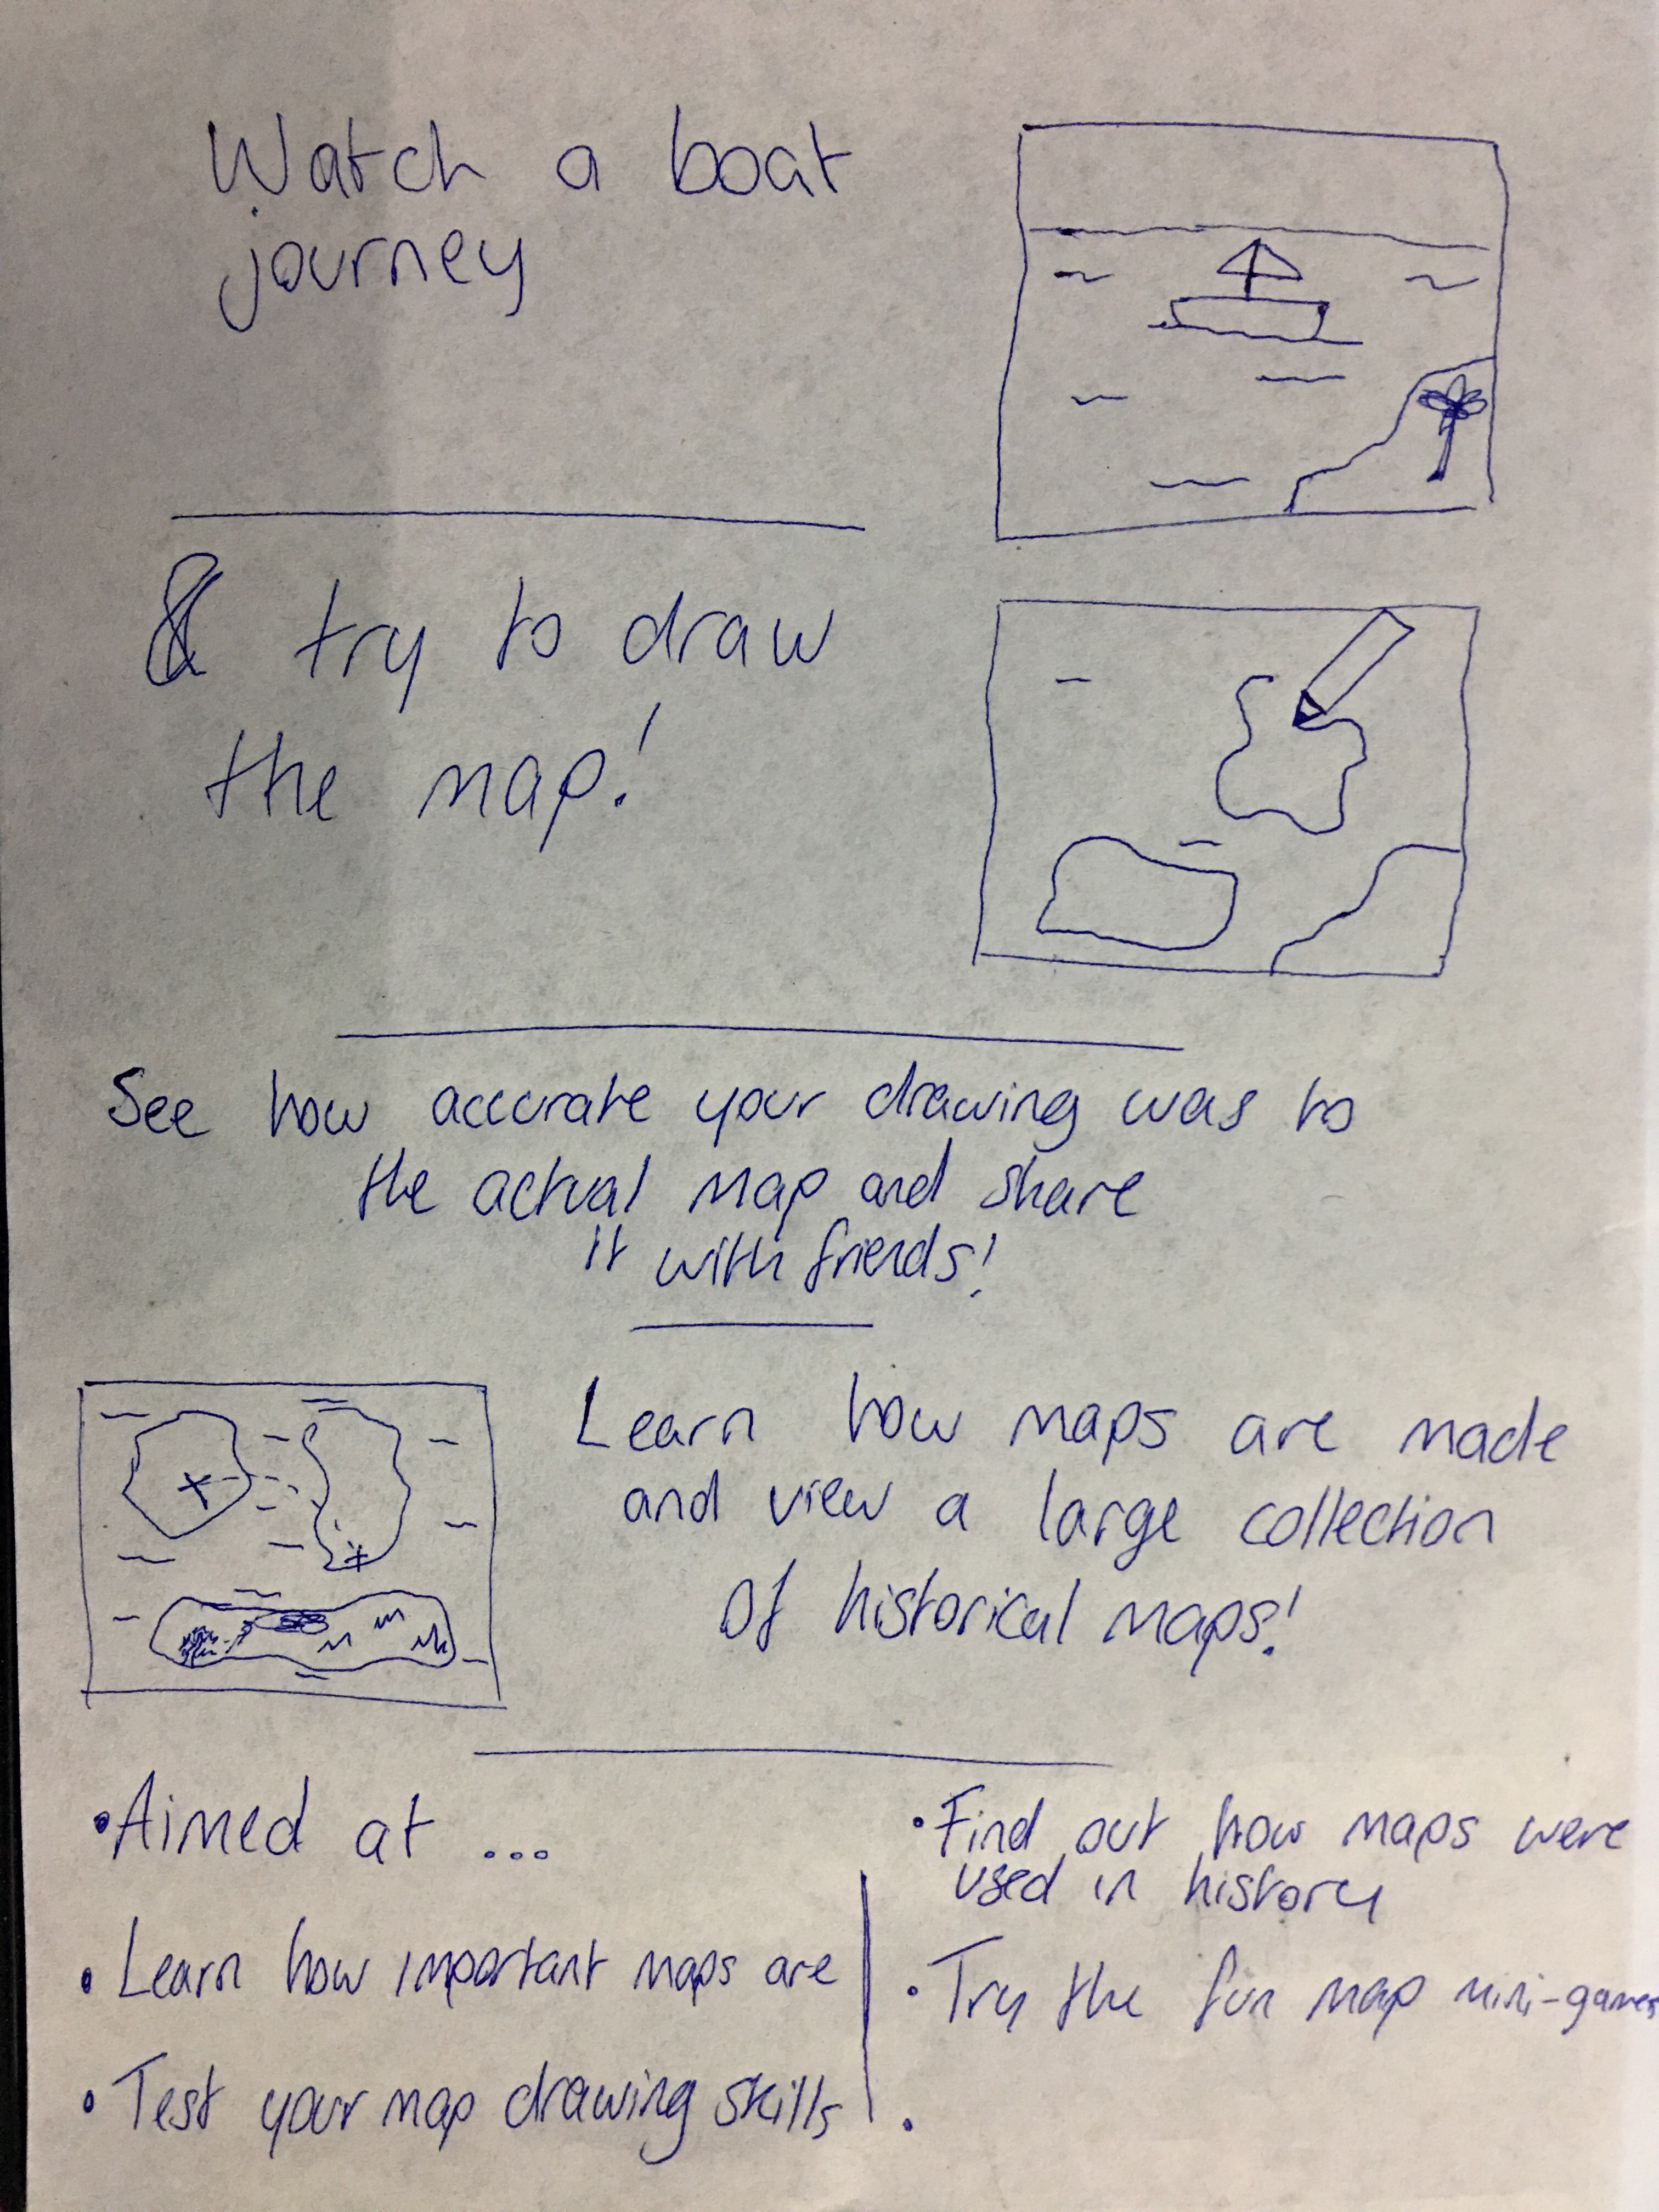 Watch a boat
journey
& try to draw
the map!
See how accurate your drawing was to
the actual map and share
it with friends!
Learn how maps are made
and view a large collection
of historical maps!
• Aimed at ...
• Learn how important maps are
• Test your map drawing skills
• Find out how maps were
used in history
• Try the fun map mini-games
•